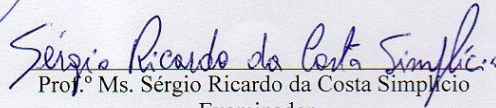 Sérgio Ricardo da Costa Simplício
Prof.º Ms. Sérgio Ricardo da Costa Simplício
Examinador